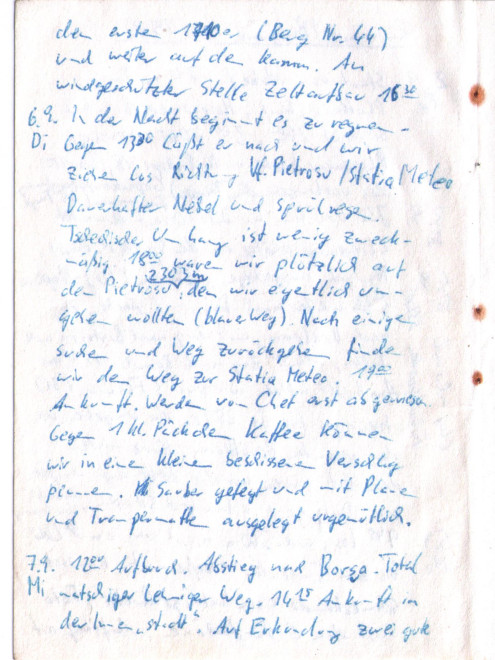 den ersten 1710er (Berg Nr. 44)
und weiter auf den Kamm. An
windgeschützter Stelle Zeltaufbau 16³⁰
6.9. In der Nacht beginnt es zu regnen.
Di Gegen 13⁰⁰ läßt er nach und wir
ziehen los Richtung Vf. Pietrosu / Statia Meteo
Dauerhafter Nebel und Sprühregen.
Tschechischer Umhang ist wenig zweck-
mäßig. 18⁰⁰ waren wir plötzlich auf
2303m
dem Pietrosu, den wir eigentlich um-
gehen wollten (blauer Weg). Nach einigen
suchen und Weg zurückgehen finden
wir den Weg zur Statia Meteo. 19⁰⁰
Ankunft. Werden vom Chef erst abgewiesen.
Gegen 1 kl. Päckchen Kaffee können
wir in einen kleinen beschissenen Verschlag
pennen. Sauber gefegt und mit Plane
und Trampermatte ausgelegt urgemütlich.
7.9. 12⁰⁰ Aufbruch. Abstieg nach Borşa. Total
Mi matschiger lehmiger Weg. 14¹⁵ Ankunft in
der Innen „stadt". Auf Erkundung zwei gute